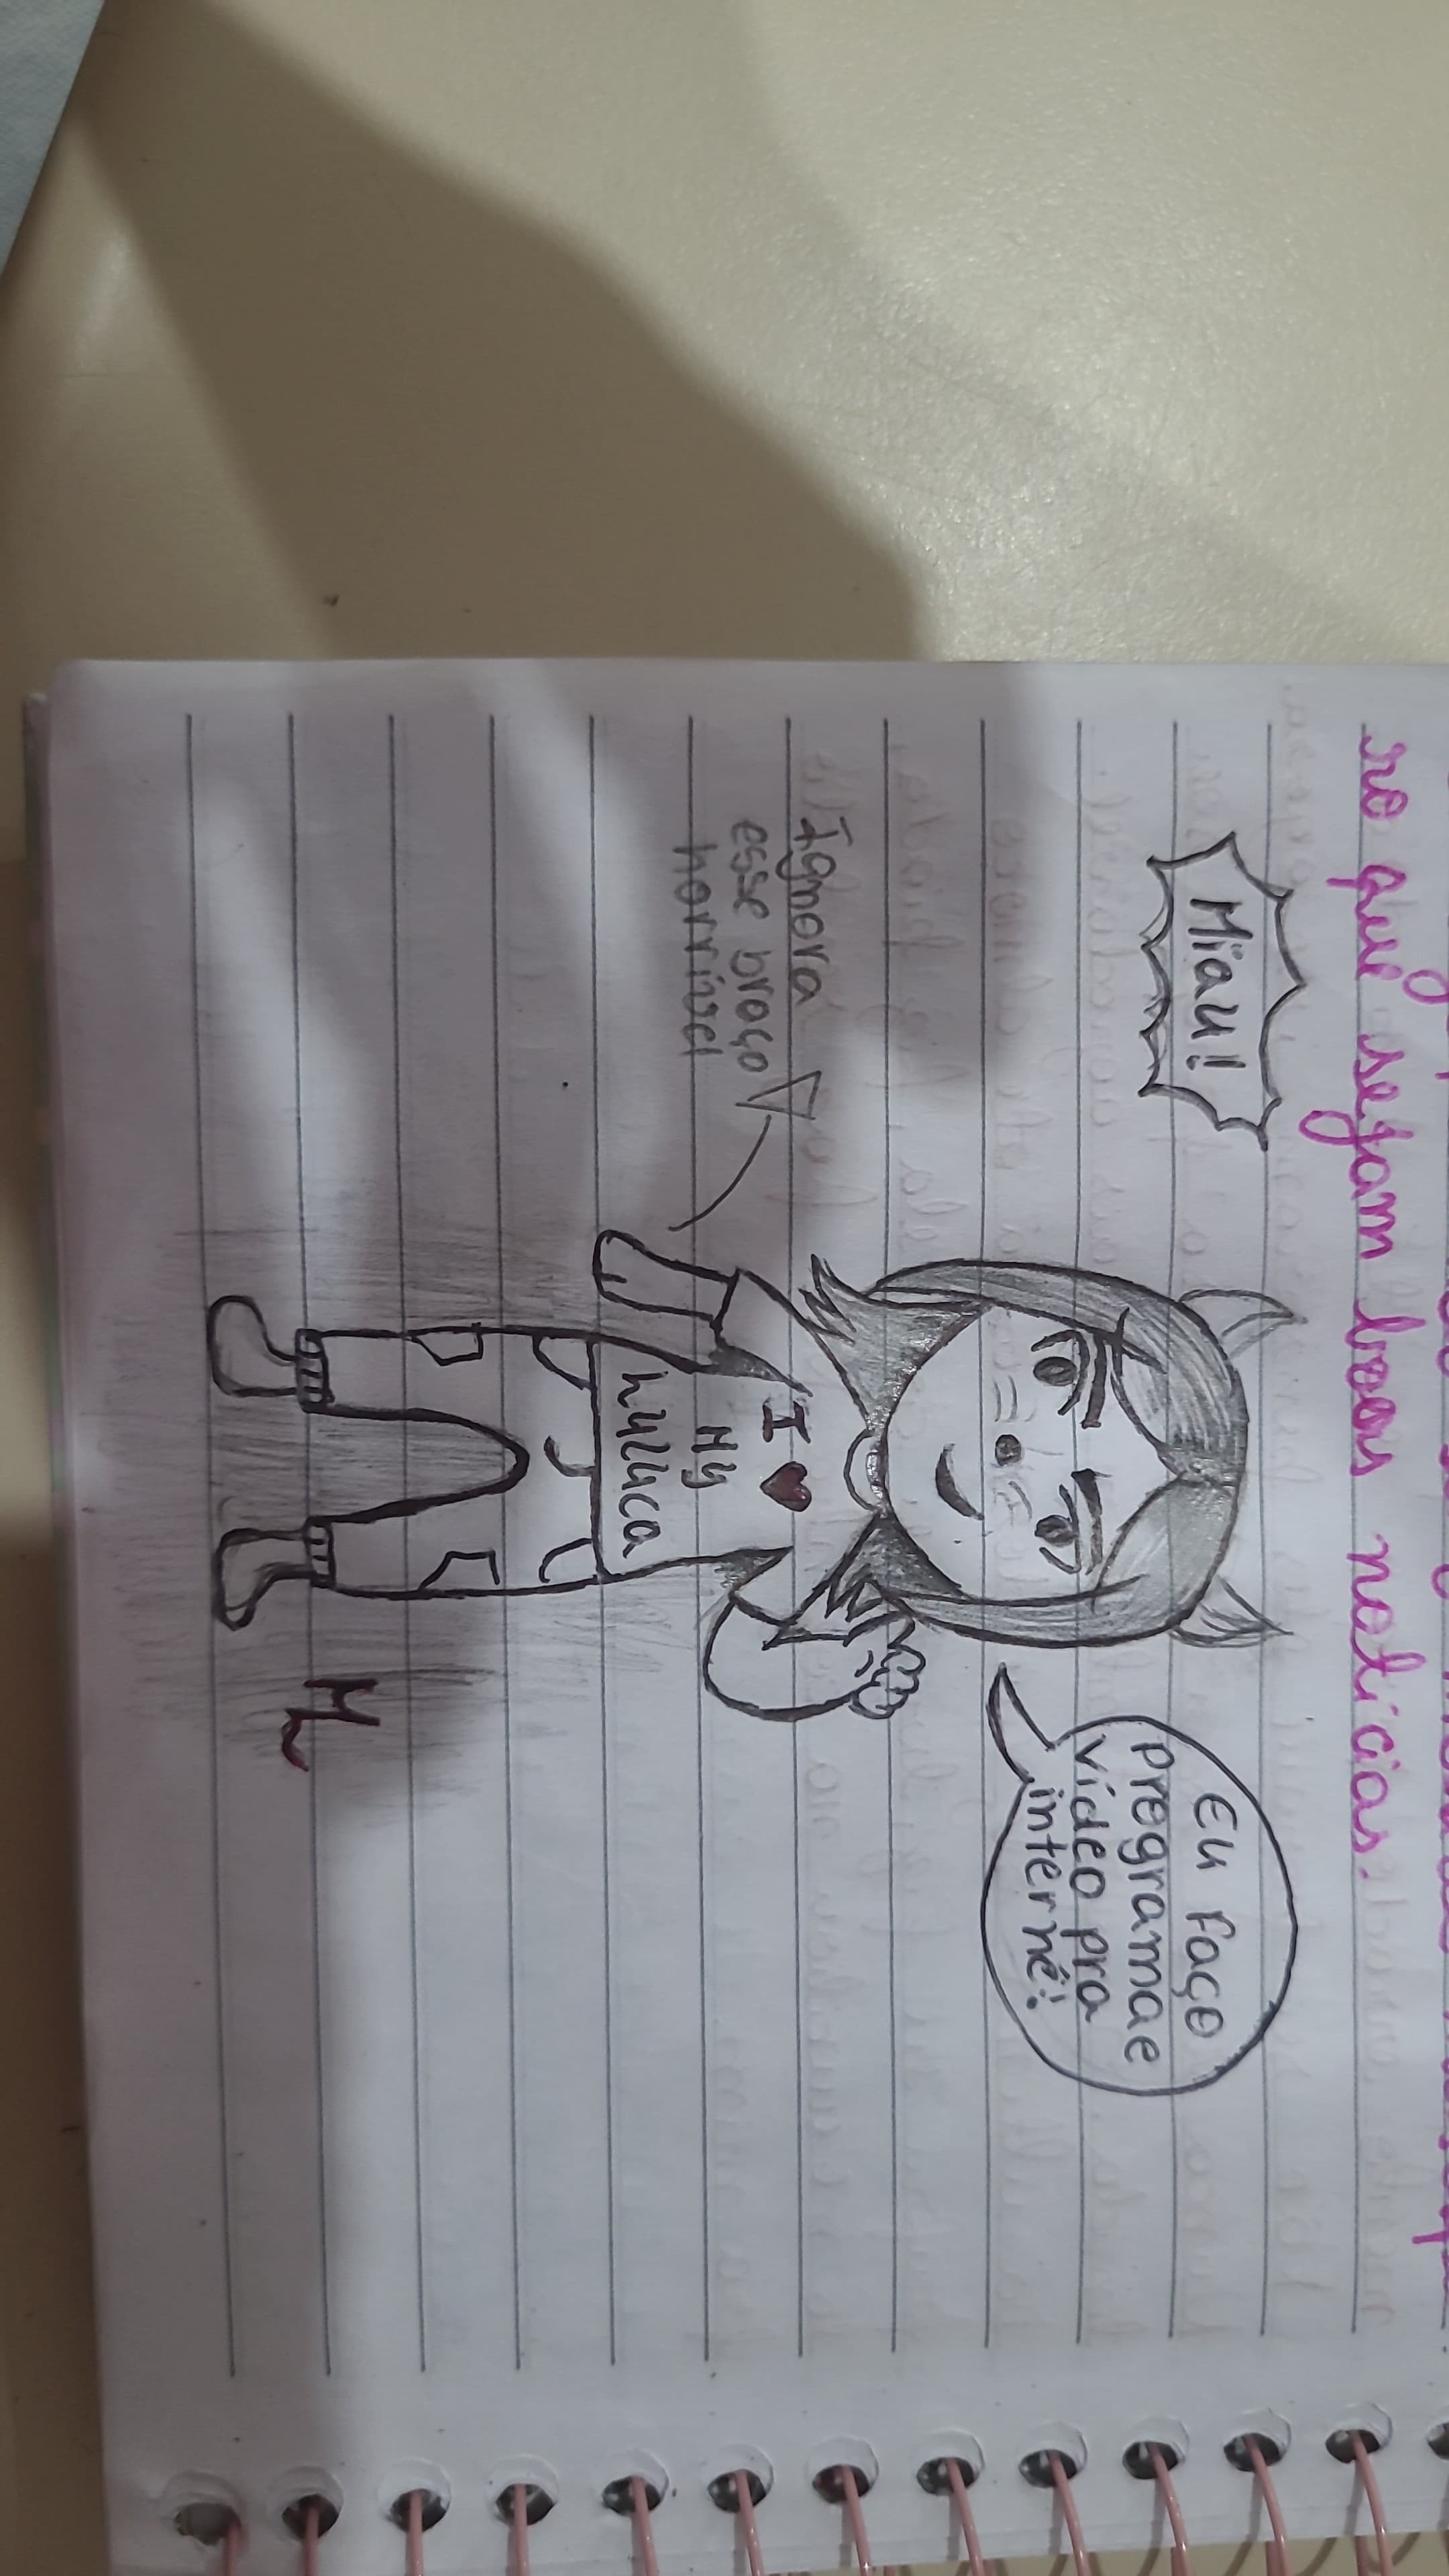 ro que sejam boas notícias.
Miau!
Eu faço
programa e
vídeo pra
internê!
Ignora
esse braço
horrível
I ♥
My
Luluca
ML